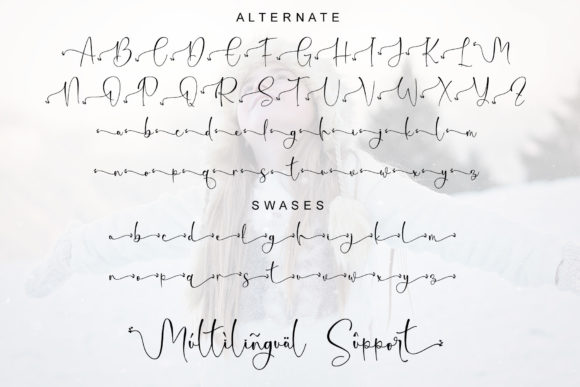 ALTERNATE
A B C D E F G H I J K L M
N O P Q R S T U V W X Y Z
a b c d e f g h i j k l m
n o p q r s t u v w x y z
SWASES
a b c d e f g h i j k l m
n o p q r s t u v w x y z
Múltìlíñguäl Sûpport